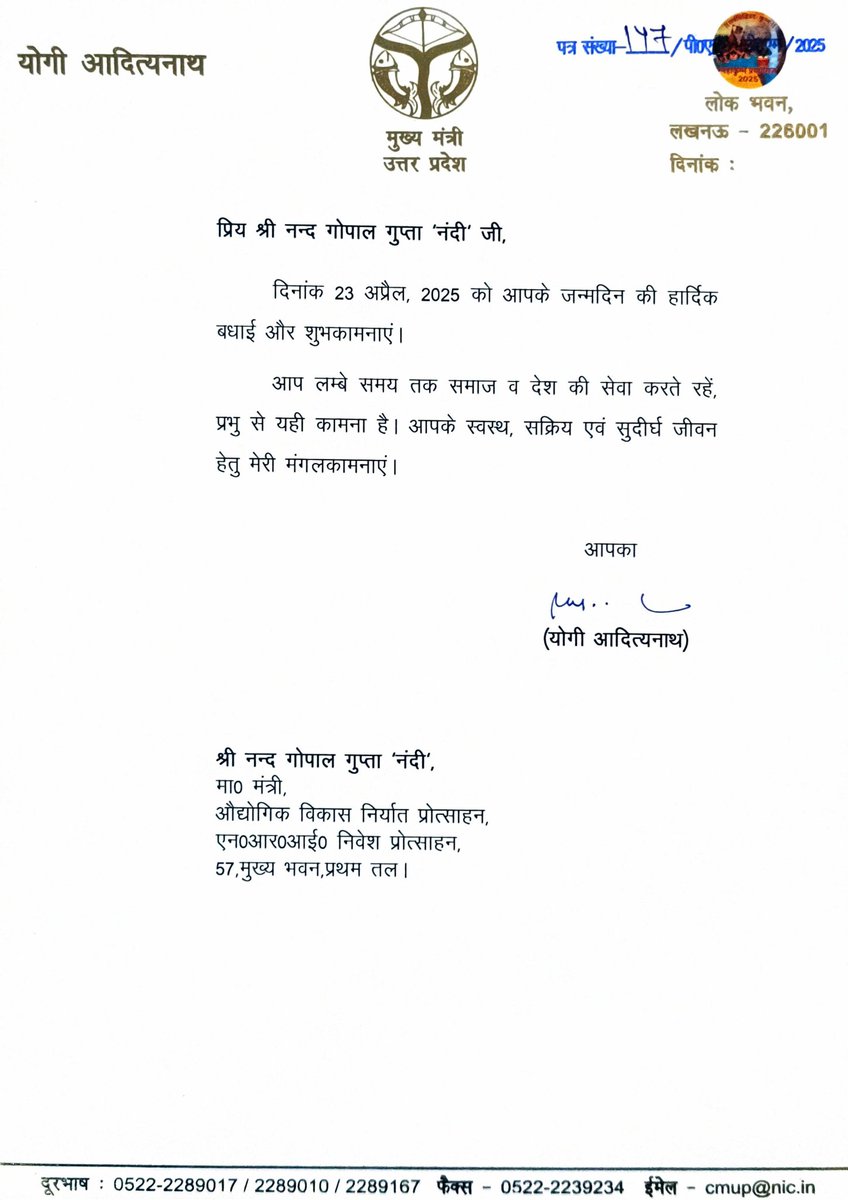 योगी आदित्यनाथ
मुख्य मंत्री
उत्तर प्रदेश
पत्र संख्या-147/पी0 /2025
2025
लोक भवन,
लखनऊ - 226001
दिनांक :
प्रिय श्री नन्द गोपाल गुप्ता 'नंदी' जी,
दिनांक 23 अप्रैल, 2025 को आपके जन्मदिन की हार्दिक
बधाई और शुभकामनाएं।
आप लम्बे समय तक समाज व देश की सेवा करते रहें,
प्रभु से यही कामना है। आपके स्वस्थ, सक्रिय एवं सुदीर्घ जीवन
हेतु मेरी मंगलकामनाएं।
आपका
(योगी आदित्यनाथ)
श्री नन्द गोपाल गुप्ता 'नंदी',
मा0 मंत्री,
औद्योगिक विकास निर्यात प्रोत्साहन,
एन0आर0आई0 निवेश प्रोत्साहन,
57,मुख्य भवन,प्रथम तल।
दूरभाष : 0522-2289017 / 2289010 / 2289167 फैक्स - 0522-2239234 ईमेल - cmup@nic.in